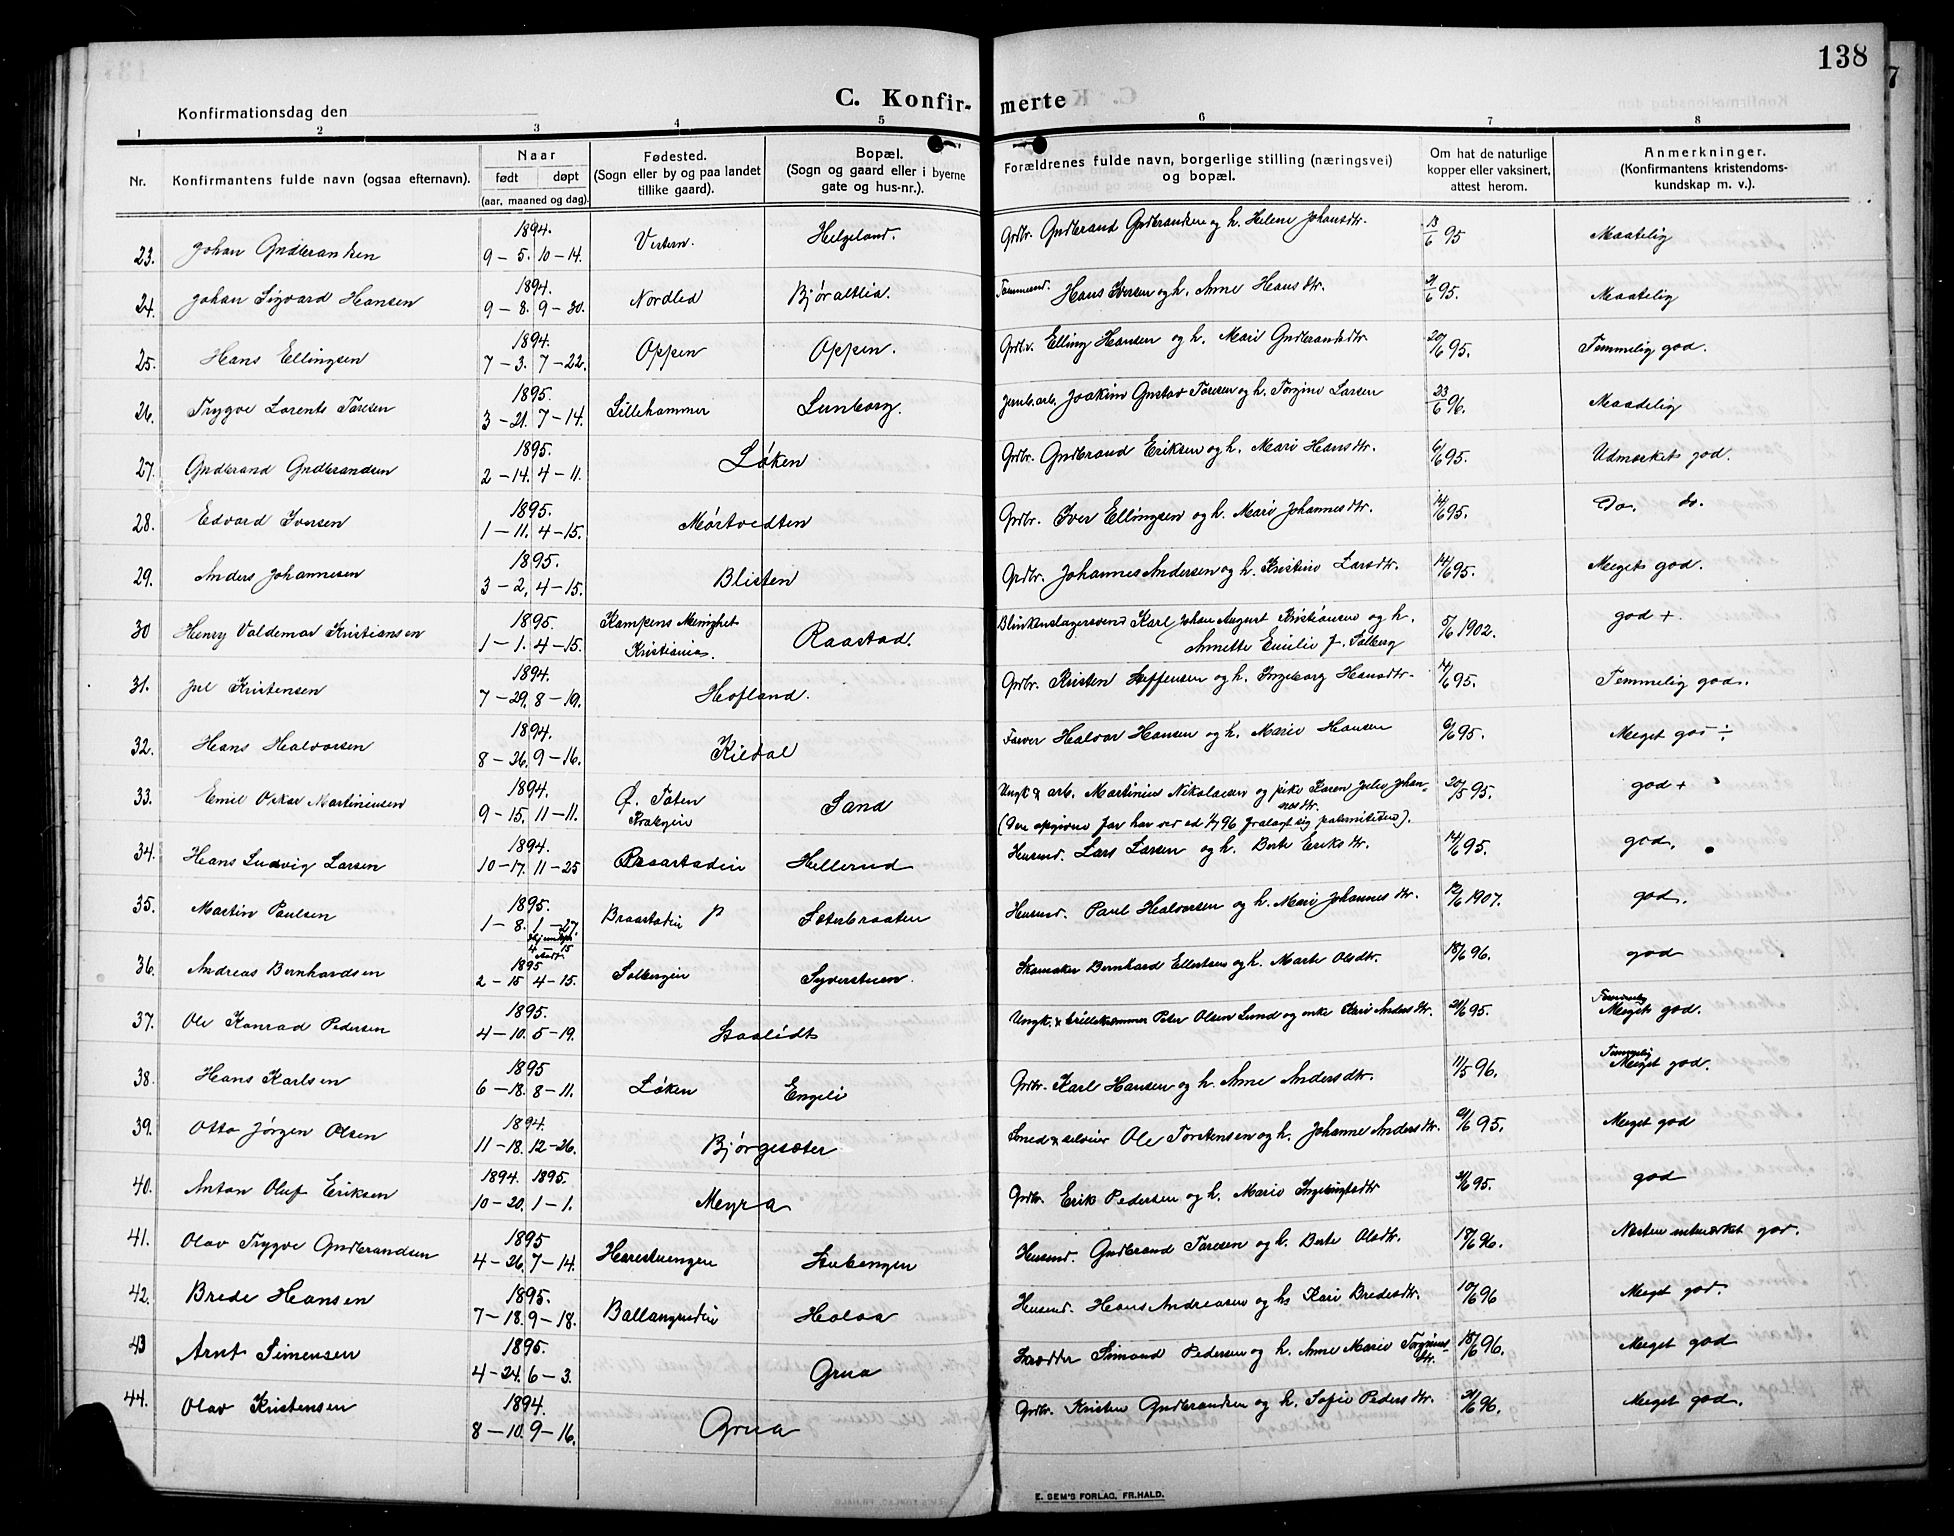 138
C. Konfir- merte
Konfirmationsdag den
1 2 3 4 5 6 7 8
Nr. Konfirmantens fulde navn (ogsaa efternavn). Naar født døpt (aar, maaned og dag). Fødested. (Sogn eller by og paa landet tillike gaard). Bopæl. (Sogn og gaard eller i byerne gate og hus-nr.). Forældrenes fulde navn, borgerlige stilling (næringsvei) og bopæl. Om hat de naturlige kopper eller vaksinert, attest herom. Anmerkninger. (Konfirmantens kristendoms- kundskap m. v.).
23. Johan Gudbrandsen 1894. 9 – 5. 10 – 14. Vestern. Helgeland. Grdbr. Gudbrand Gudbrandsen og h. Helene Johansdtr. 13/6 95 Maatelig
24. Johan Sigvard Hansen 1894. 9 – 8. 9 – 30. Nordlid Bjøraltlia. Hans Iversen og h. Anne Hansdtr. 21/6 95. Maatelig
25. Hans Ellingsen 1894. 7 – 3. 7 – 22. Oppen Oppen. Grdbr. Elling Hansen og h. Mari Gudbrandsdtr 20/6 95. Temmelig god.
26. Trygve Lorents Toresen 1895. 3 – 21. 7 – 14. Lillehammer Lunborg. Jernb.arb. Joakim Gustav Toresen og h. Torgine Larsen 23/6 96. Maadelig
27. Gudbrand Gudbrandsen 1895. 2 – 14. 4 – 11. Løken Grdbr. Gudbrand Eriksen og h. Mari Hansdtr. 6/6 95. Udmerket god.
28. Edvard Iversen 1895. 1 – 11. 4 – 15. Mørtvedten Grdbr. Iver Ellingsen og h. Mari Johannesdtr. 14/6 95. Do. do.
29. Anders Johannesen 1895. 3 – 2. 4 – 15. Blisten Grdbr. Johannes Andersen og h. Kristine Larsdtr. 14/6 95. Meget god.
30 Henry Valdemar Kristiansen 1895. 1 – 1. 4 – 15. Kampens Menighet Kristiania. Raastad. Blikkenslagersvend Karl Johan August Kristiansen og h. Annette Emilie J. Solberg 5/6 1902. god +.
31. Jul Kristensen 1894. 7 – 29. 8 – 19. Hofland. Grdbr. Kristen Steffensen og h. Ingeborg Hansdtr. 14/6 95. Temmelig god.
32. Hans Halvorsen 1894. 8 – 26. 9 – 16. Kildal Farver Halvor Hansen og h. Marie Hansen 6/6 95. Meget god ÷
33. Emil Oskar Martiniusen 1894. 9 – 15. 11 – 11. Ø. Toten Sand Ungk. & arb. Martinius Nikolaisen og pike Karen Julie Johan- nesdtr. 20/5 95. god +
(Den opgivne far har ved ed 1/7 96 fralagt sig paterniteten).
34. Hans Ludvig Larsen 1894. 10 – 17. 11 – 25 Braastadeie Hellerud Husmd. Lars Larsen og h. Berte Eriksdtr. 14/6 95. god.
35. Martin Paulsen 1895. 1 – 8. 1 – 27. 4 – 15 Braastadeie Sæterbraaten Husmd. Paul Halvorsen og h. Mari Johannesdtr. 12/6 1907. god.
36. Andreas Bernhardsen 1895 2 – 15 4 – 15. Solbergeie Syverstuen. Skomaker Bernhard Ellertsen og h. Marte Olsdtr. 18/6 96. god
37. Ole Konrad Pedersen 1895. 4 – 10. 5 – 19. Staalidt Ungk. & Peter Olsen Lund og enke Kari Andersdtr. 21/6 95. Temmelig Meget god.
38. Hans Karlsen 1895 6 – 18. 8 – 11. Løken Engeli Grdbr. Karl Hansen og h. Anne Andersdtr. 11/5 96. Temmelig Meget god.
39. Otto Jørgen Olsen 1894. 11 – 18. 12 – 26. Bjørgesæter Smed & selveier Ole Torstensen og h. Johanne Andersdtr. 6/6 95. Meget god
40. Anton Oluf Eriksen 1894. 1895. 10 – 20. 1 – 1. Meyra Grdbr. Erik Pedersen og h. Marie Ingebrigtsdtr 21/6 95. god
41. Olav Trygve Gudbrandsen 1895 4 – 26. 7 – 14. Harestuengen Stubengen Husmd. Gudbrand Toresen og h. Berte Olsdtr. 18/6 96. Næsten utmerket god.
42. Brede Hansen 1895. 7 – 18. 9 – 18. Ballangrudeie Halva Husmd. Hans Andreasen og hs Kari Bredesdtr. 10/6 96 Meget god.
43 Arnt Simensen 1895. 4 – 24. 6 – 3. Grua Skrædder Simond Pedersen og h. Anne Marie Torginusdtr. 18/6 96. Meget god
44. Olav Kristensen 1894. 8 – 10. 9 – 16. Grua Grdbr. Kristen Gudbrandsen og h. Sofie Pedersdtr. 21/6 96. Meget god.
E. SEM'S FORLAG, FR.HALD.